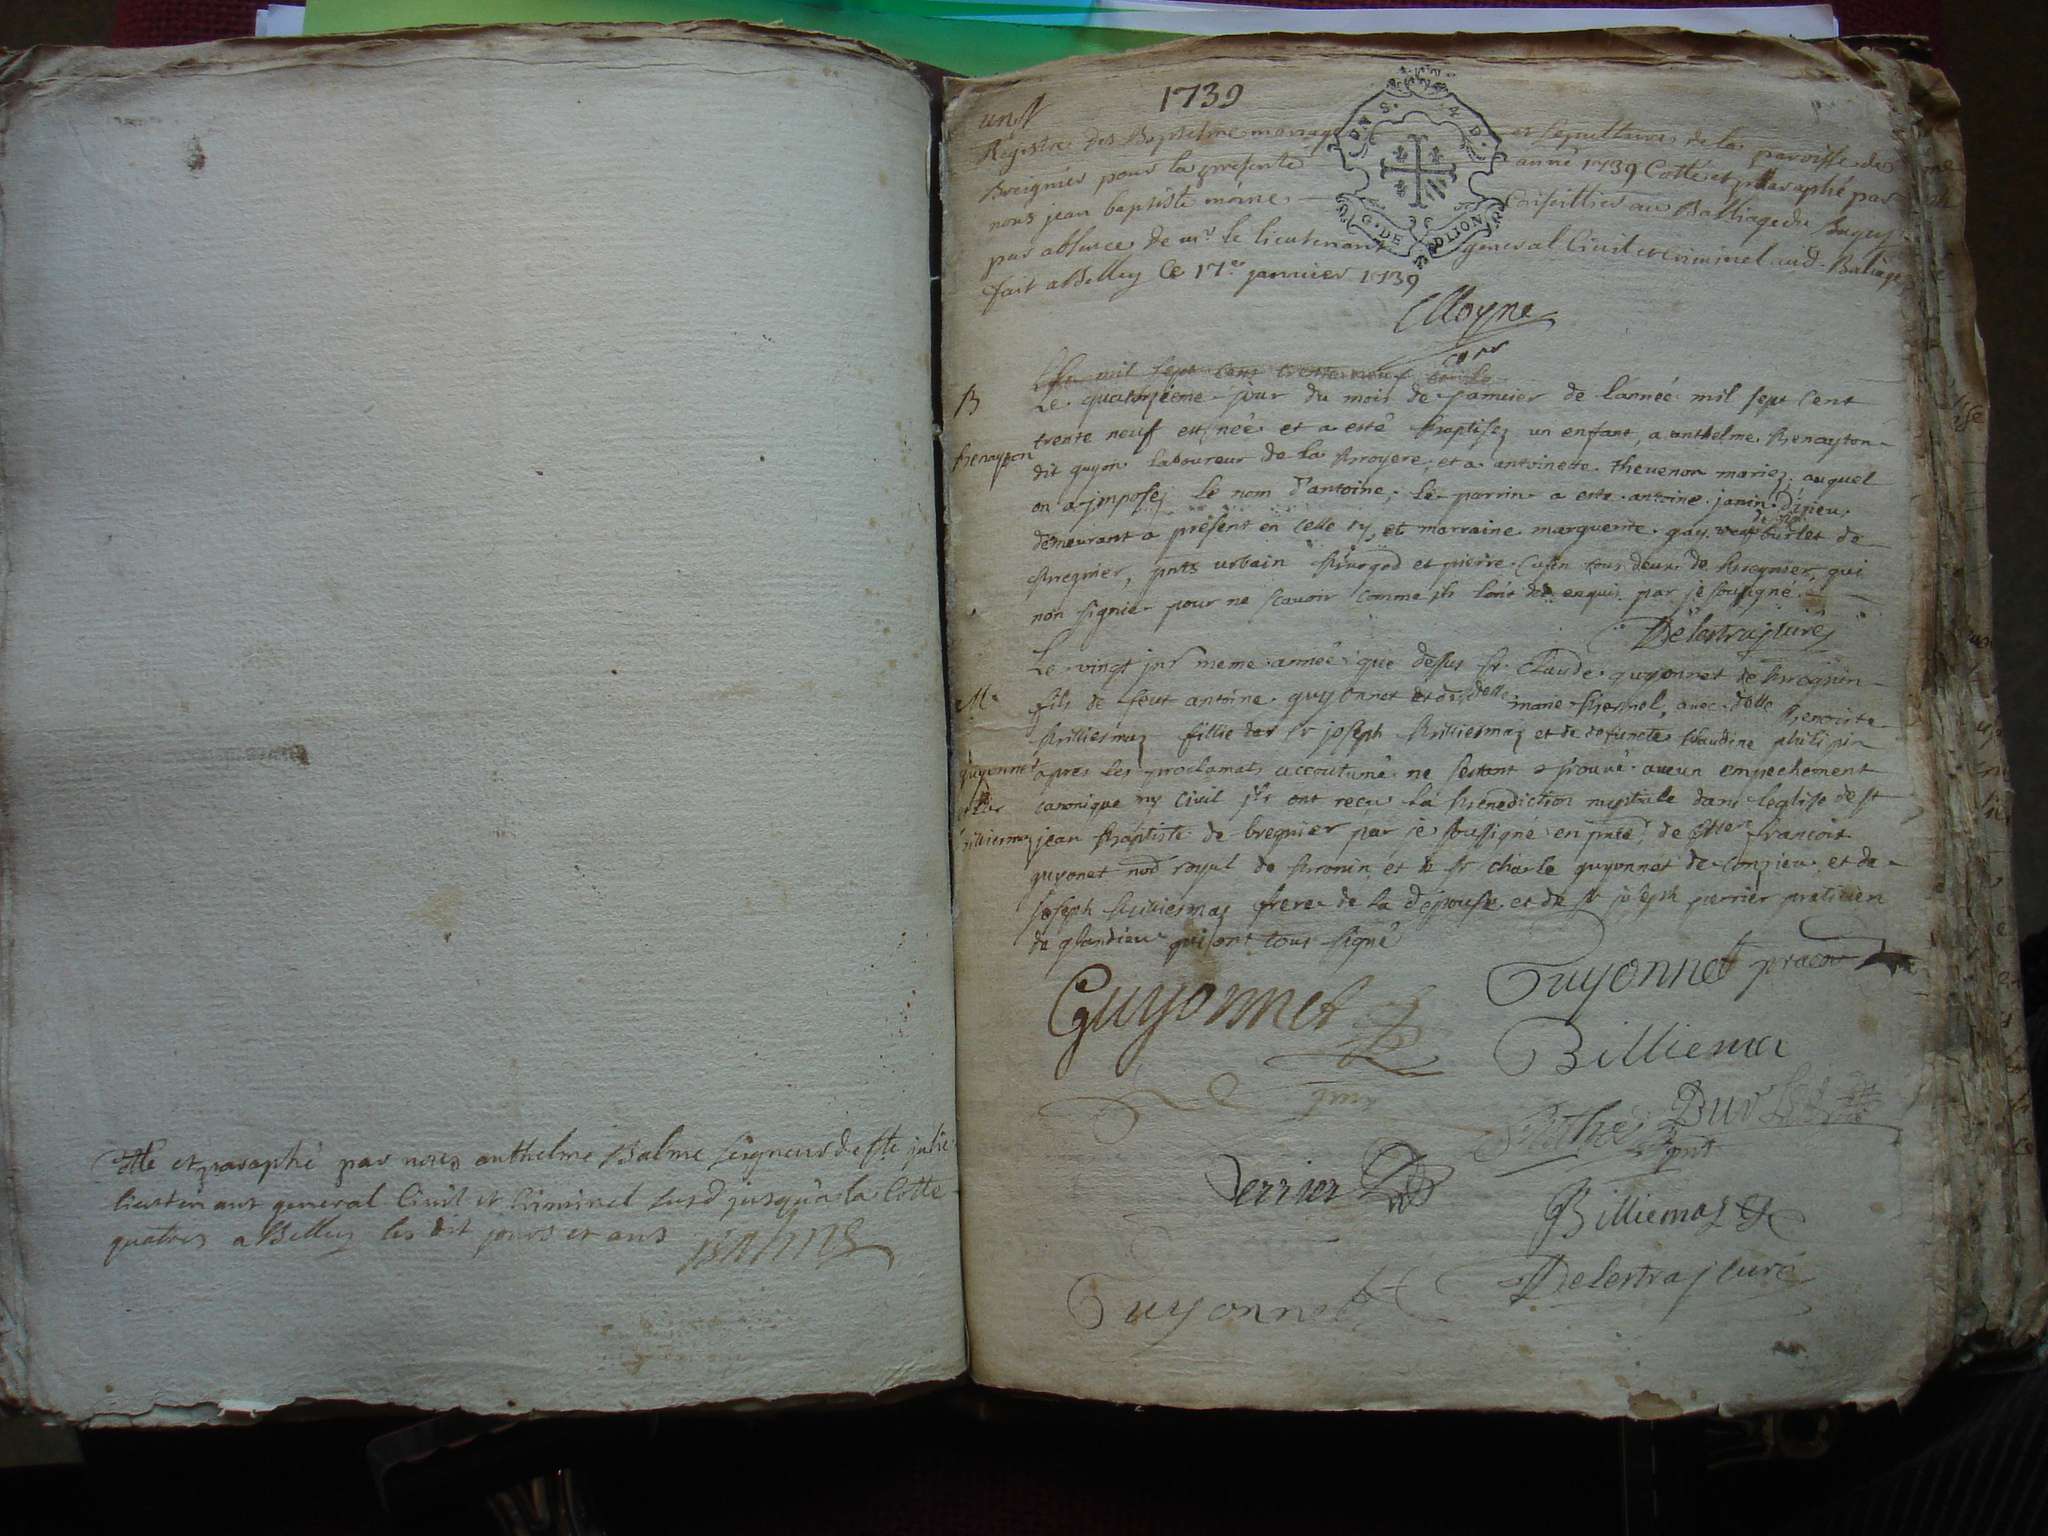 Cotte et paraphé par nous anthelme Balme Seigneur de Ste julie
lieutenant general Civil et Criminel jusqu'a la Cotte
quatres a Belley les dit jours et ans Balme
1739
un
Registre des Baptesme mariage et sepultures de la paroisse de
Breignier pour la presente anné 1739 Cotté et paraphé par
nous jean baptiste moine Conseillier au Balliage du Bugey
par absence de mr le lieutenant general Civil et Criminel aud Baliage
fait a Belley Ce 17e janvier 1739
G. DE DIJON
Moyne
B
Le quatorzieme jour du mois de janvier de lannée mil sept Cent
trente neuf est née et a esté baptisez un enfant, a anthelme Benayton
Benayton
dit guyon laboureur de la Broyere, et a antoinette thevenon mariez, auquel
on a jmposez le nom d'antoine, le parrin a este antoine janin
demeurant a présent en celle cy, et marraine marguerite guy burlet de
Bregnier, pnts urbain et pierre Cusin tous deux de Bregnier, qui
non signie pour ne scavoir comme ils lont de enquis par je sousigné
Delestraz curé
Le vingt jnr meme année que dessus sr Claude guyonnet de
M
fils de feut antoine guyonnet et de delle marie avec delle Benoiste
Billiemaz fillie de sr joseph Billiemaz et de defuncte Claudine philipin
guyonnet
apres les proclamats accoutumé ne sestant trouvé aucun empechement
et
canonique ny Civil jls ont recu la Benediction nuptiale dans leglise de st
Billiemaz
jean Baptiste de bregnier par je soussigné en de francois
guyonet royal de et de sr charle guyonnet de Conzieu et de
joseph Billiemaz frere de la d'epouse et de sr joseph perrier praticien
de glandieu qui ont tous signé
Guyonnet
Guyonnet
Billiema
Perrier
Billiemaz
Guyonnet
Delestraz curé